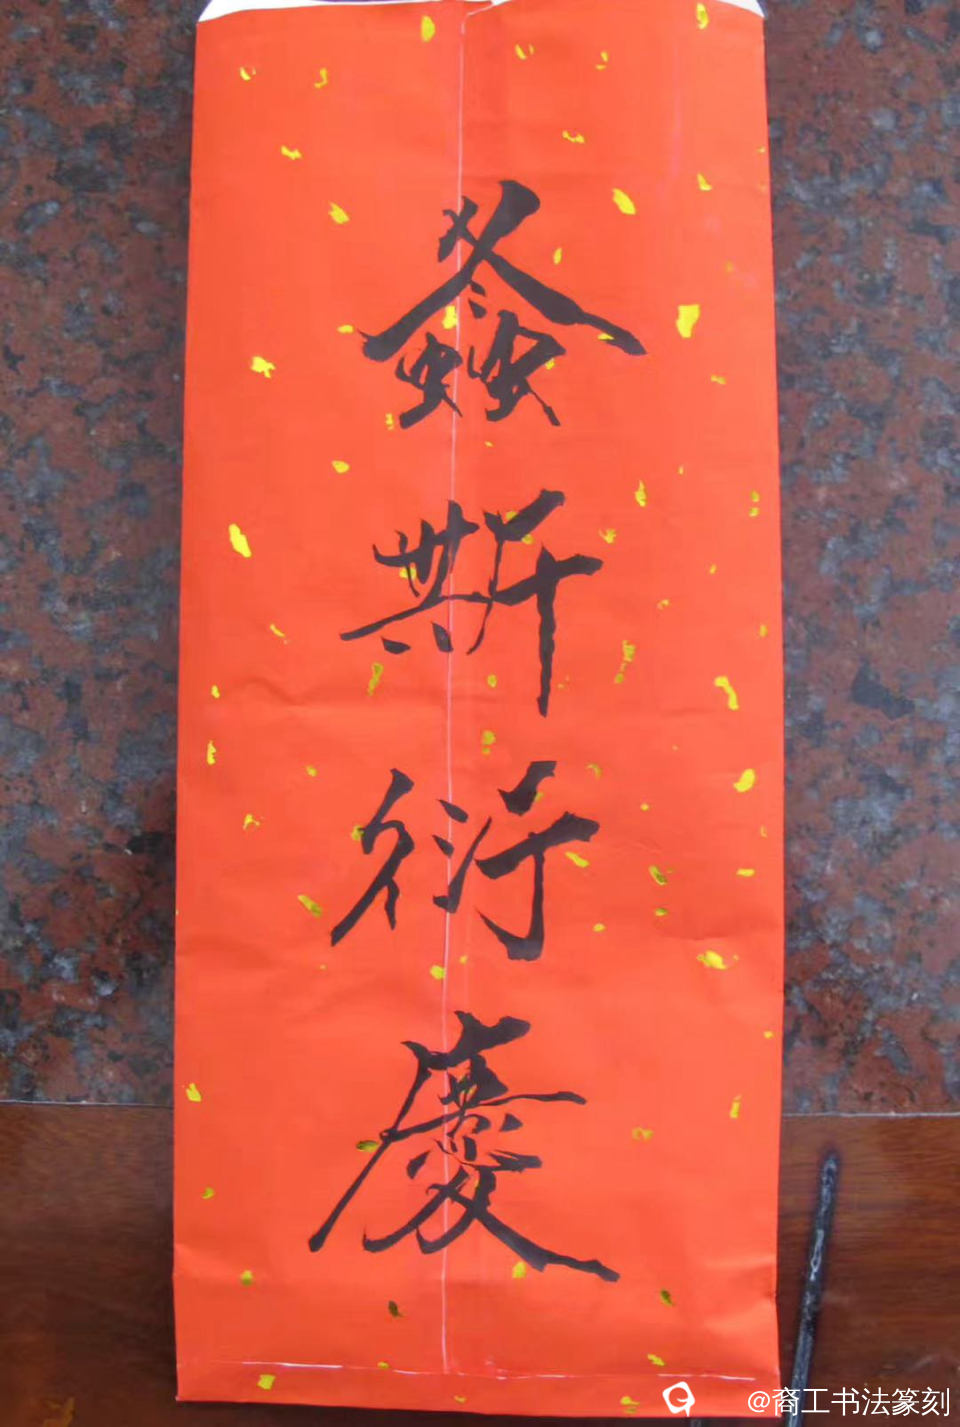 螽斯衍慶
@裔工书法篆刻